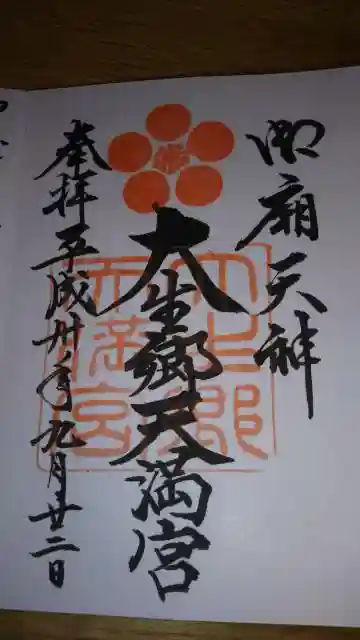 御廟天神
大生郷天満宮
奉拝平成卅年九月廿二日
大生郷天満宮